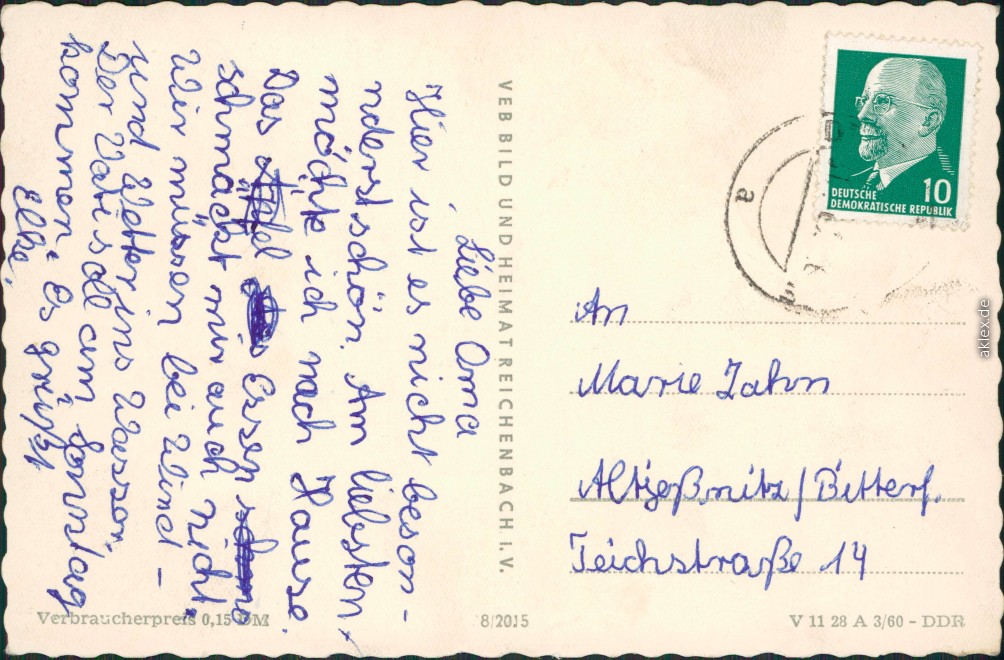 Liebe Oma
Hier ist es nicht beson-
nders schön. Am liebsten
möchte ich nach Hause.
Das Essen
schmäckt mir auch nicht.
Wir müssen bei Wind -
und Wetter ins Wasser.
Der Vati soll am Sonntag
kommen. Es grüßt
Elke.
VEB BILD UND HEIMAT REICHENBACH I. V.
DEUTSCHE
DEMOKRATISCHE REPUBLIK
10
a
An
Marie Zahn
Altjeßnitz / Bitterf.
Teichstraße 14
Verbraucherpreis 0,15 DM
8/2015
V 11 28 A 3/60 - DDR
aklex.de